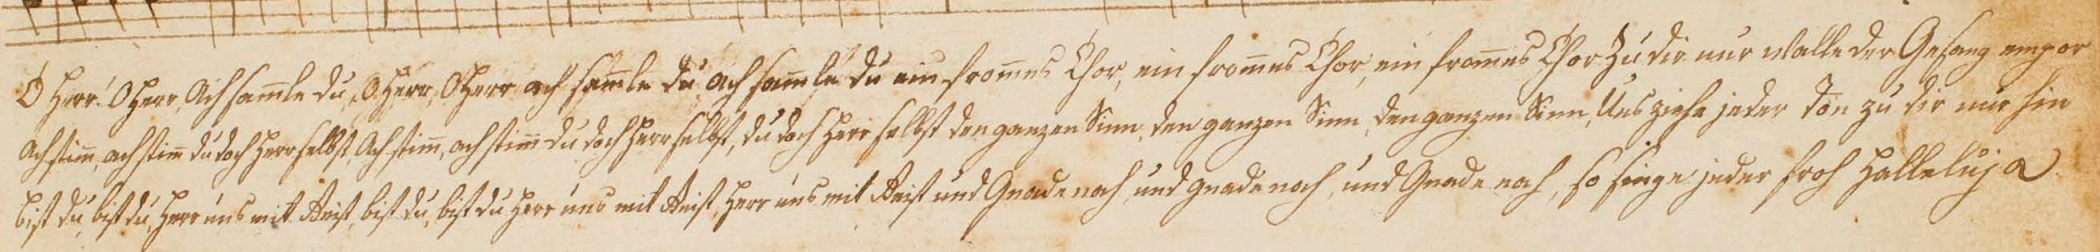 O Herr! O Herr, Ach sam̅le du, O Herr, O Herr ach sam̅le du, ach sam̅le du ein from̅es Chor, ein from̅es Chor, ein from̅es Chor Zu dir nur walle der Gesang empor
Ach stim̅, ach stim̅ du doch Herr selbst, Ach stim̅, ach stim̅ du doch Herr selbst, du doch Herr selbst den ganzen Sinn, den ganzen Sinn, den ganzen Sinn, Uns ziehe jeder Ton zu dir nur hin
bist du, bist du, Herr uns mit Geist, bist du, bist du Herr uns mit Geist, Herr uns mit Geist und Gnade nah, und gnade nah, und Gnade nah, so singe jeder froh Halleluja